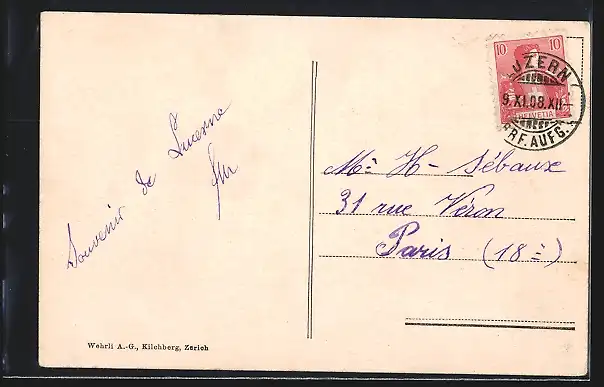 Souvenir de Lucerne
10 10
HELVETIA
LUZERN
9.XI.08.XII-
BRF.AUFG.
Mr H- Sébaux
31 rue Véron
Paris (18e)
Wehrli A.-G., Kilchberg, Zürich